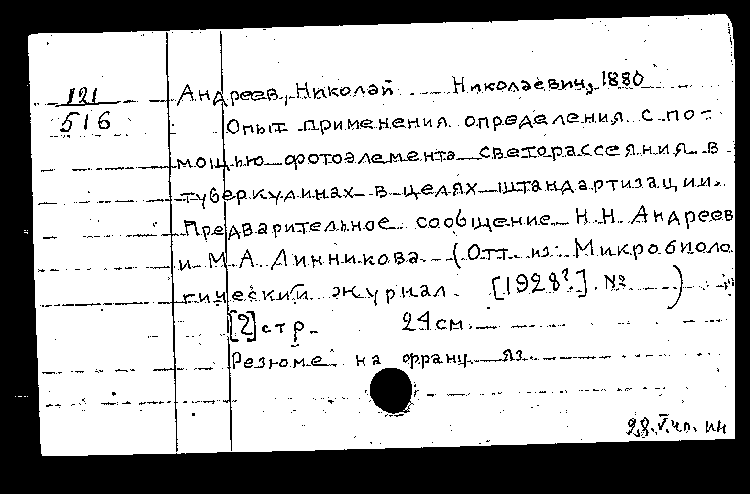 121
516
Андреев, Николай Николаевич, 1880
Опыт применения определения с по-
мощью фотоэлемента светорассеяния в
туберкулинах в целях штандартизации.
Предварительное сообщение Н.Н. Андреев
и М.А. Линникова (Отт. из: Микробиоло
гический журнал. [1928?]. № )
[2] стр. 24 см.
Резюме на франц. яз.
28.V.40. ин